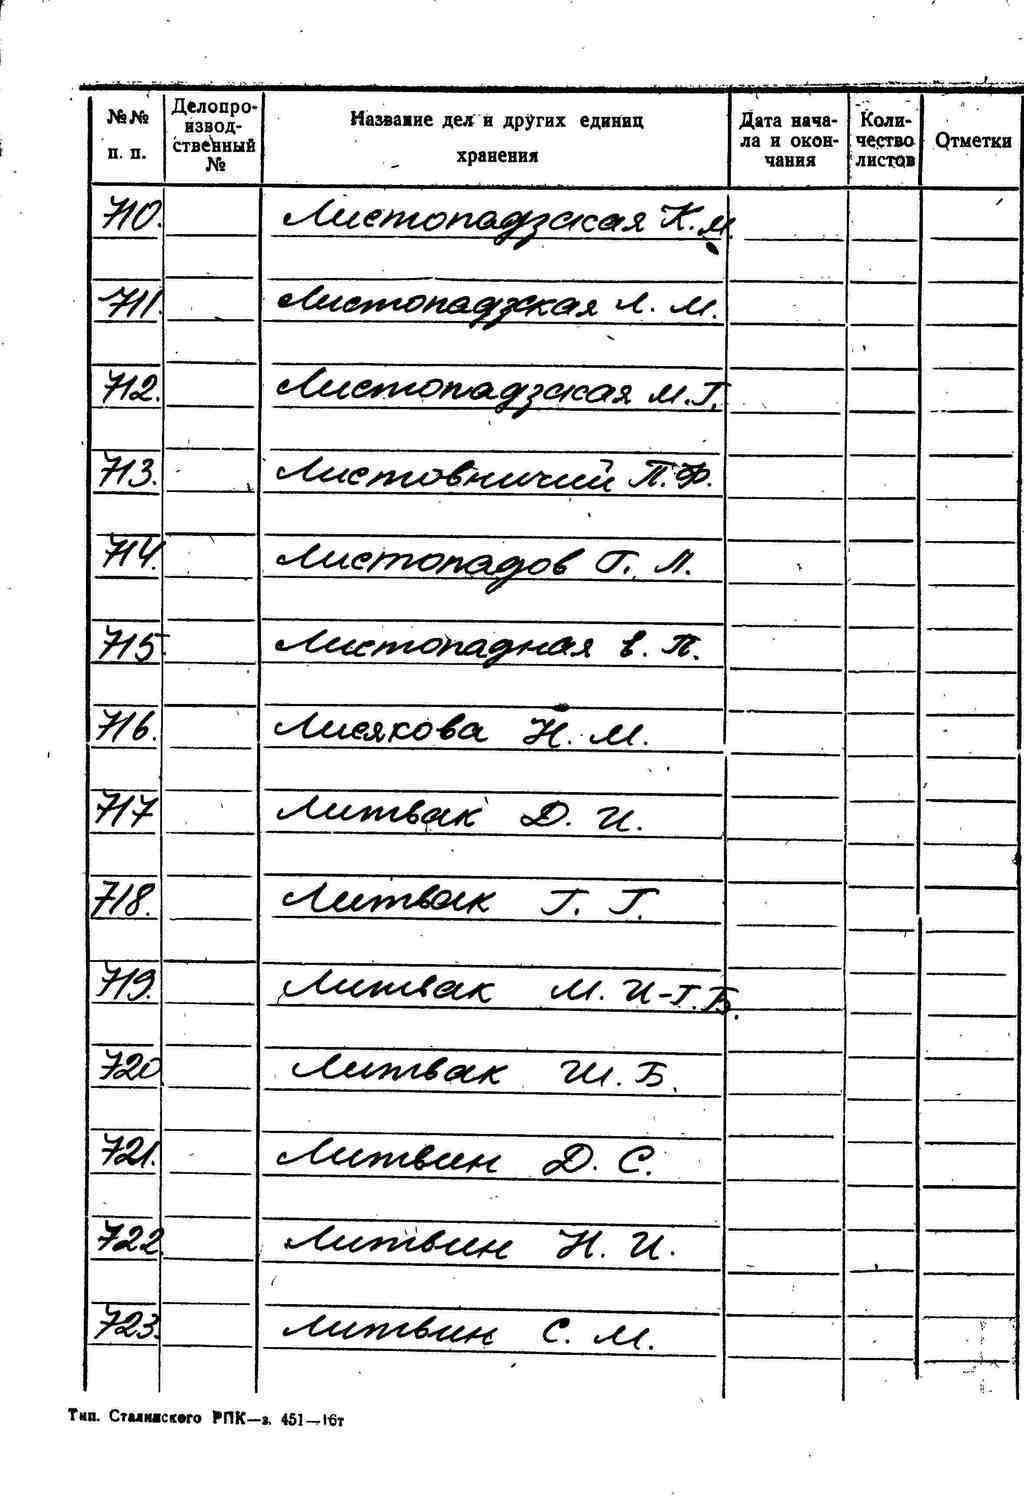 №№ п. п.
Делопроизводственный №
Название дел и других единиц хранения
Дата начала и окончания
Количество листов
Отметки
710. Листопадзская К.М.
711. Листопадзская Л. М.
712. Листопадзская М.Г.
713. Листовничий П.Ф.
714. Листопадов Г. Л.
715. Листопадная В. П.
716. Лисякова Н. М.
717 Литвак Д. И.
718. Литвак Г. Г.
719. Литвак М. И-Г.Б.
720 Литвак Ш. Б.
721. Литвин Д. С.
722 Литвин Н. И.
723. Литвин С. М.
Тип. Сталинского РПК—з. 451—16т